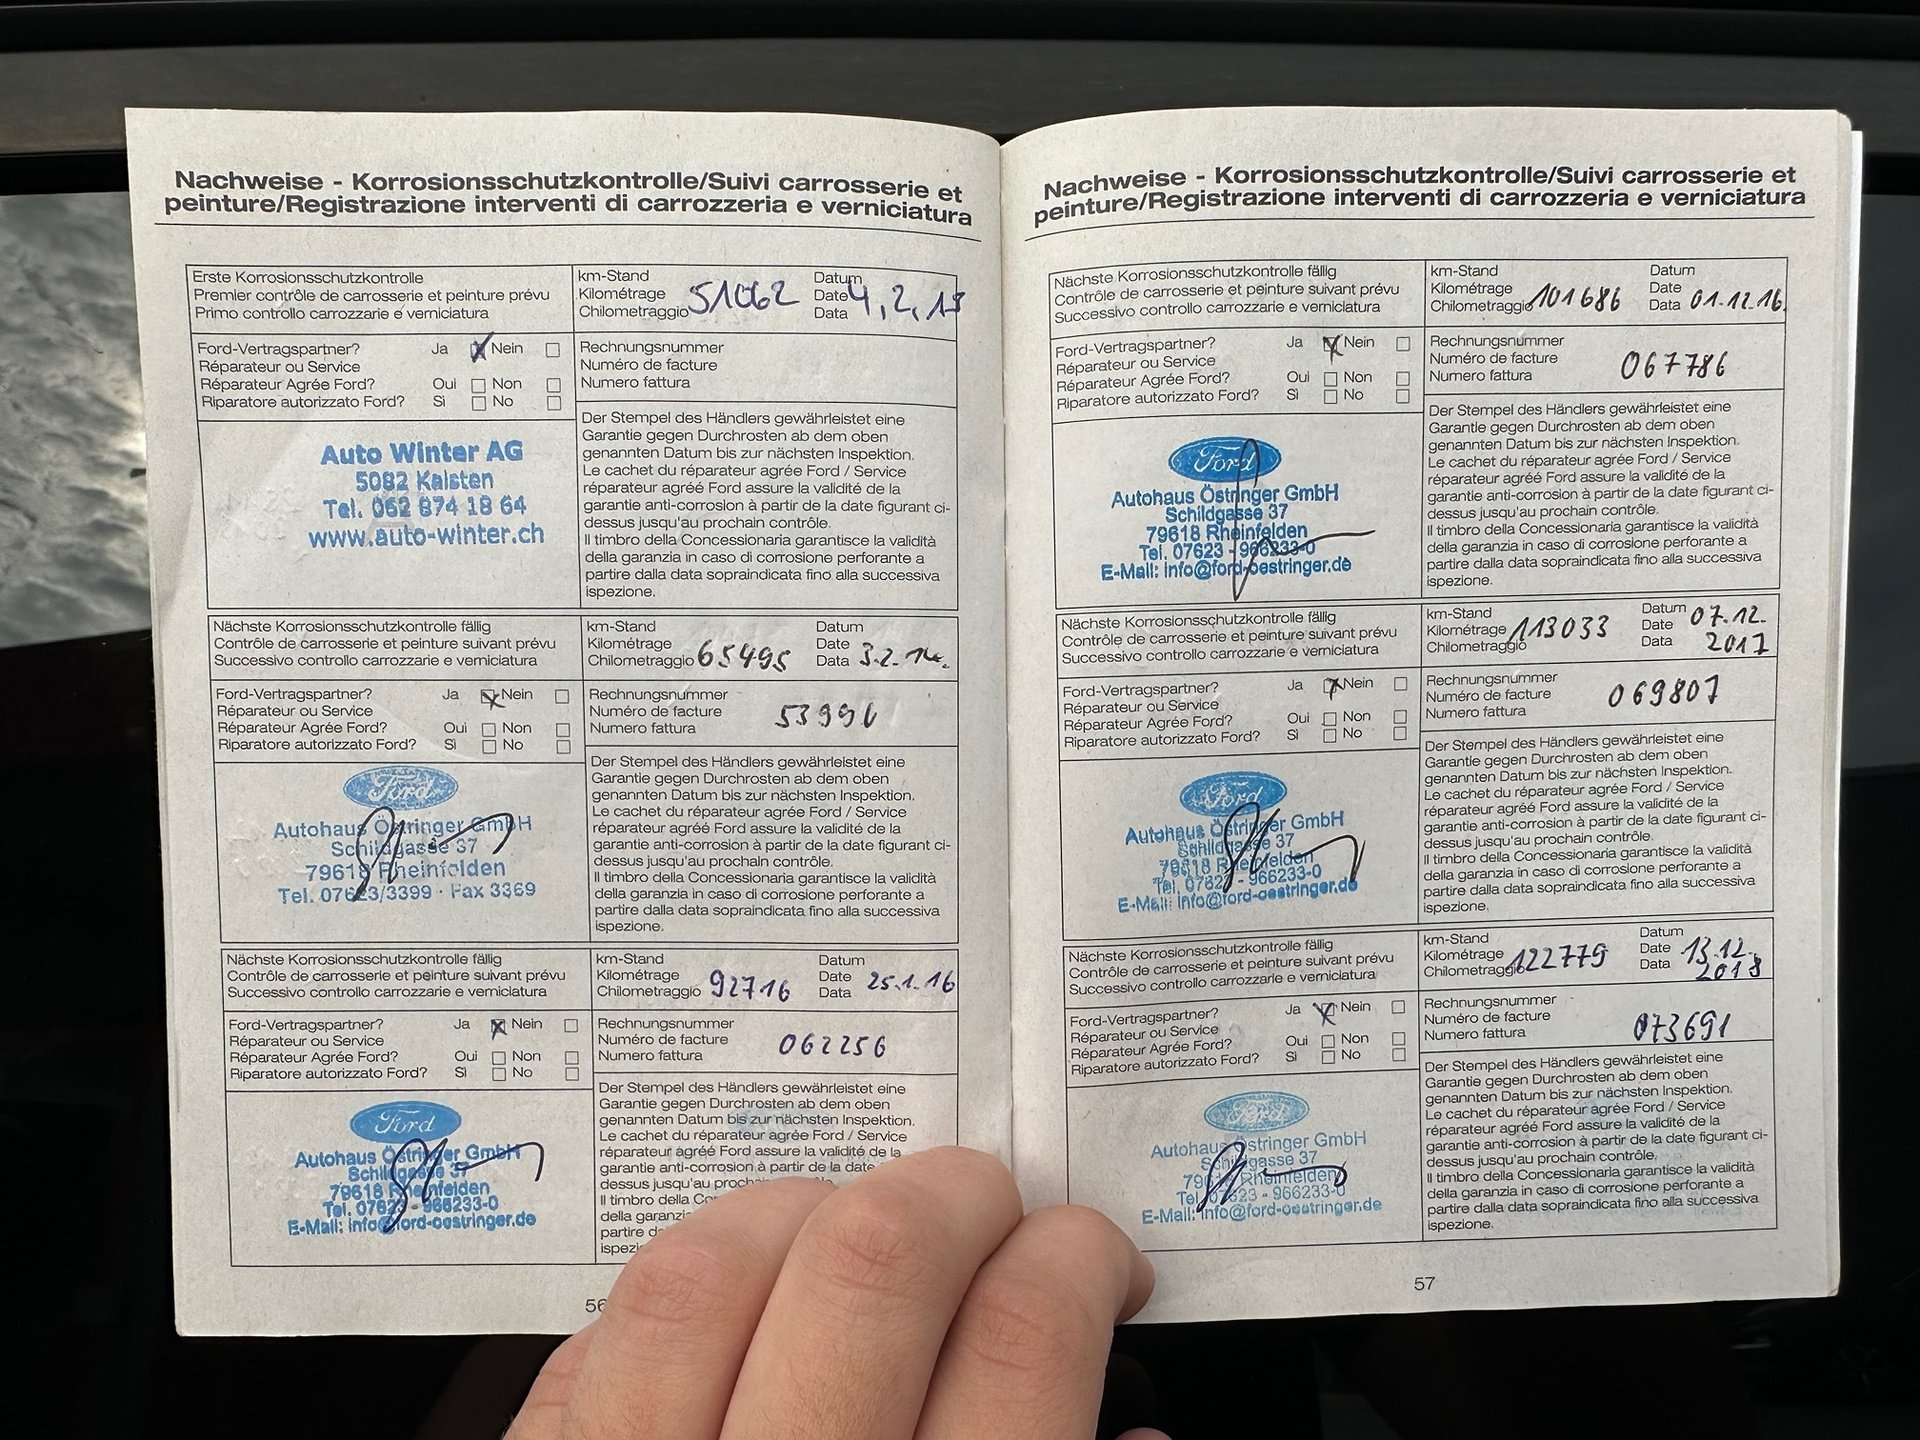 Nachweise - Korrosionsschutzkontrolle/Suivi carrosserie et
peinture/Registrazione interventi di carrozzeria e verniciatura
Erste Korrosionsschutzkontrolle
Premier contrôle de carrosserie et peinture prévu
Primo controllo carrozzarie e verniciatura
km-Stand
Kilométrage
Chilometraggio 51062
Datum
Date 4.2.13
Data
Ford-Vertragspartner? Ja X Nein
Réparateur ou Service
Réparateur Agrée Ford? Oui Non
Riparatore autorizzato Ford? Sì No
Rechnungsnummer
Numéro de facture
Numero fattura
Auto Winter AG
5082 Kaisten
Tel. 062 874 18 64
www.auto-winter.ch
Der Stempel des Händlers gewährleistet eine
Garantie gegen Durchrosten ab dem oben
genannten Datum bis zur nächsten Inspektion.
Le cachet du réparateur agrée Ford / Service
réparateur agréé Ford assure la validité de la
garantie anti-corrosion à partir de la date figurant ci-
dessus jusqu'au prochain contrôle.
Il timbro della Concessionaria garantisce la validità
della garanzia in caso di corrosione perforante a
partire dalla data sopraindicata fino alla successiva
ispezione.
Nächste Korrosionsschutzkontrolle fällig
Contrôle de carrosserie et peinture suivant prévu
Successivo controllo carrozzarie e verniciatura
km-Stand
Kilométrage
Chilometraggio 65495
Datum
Date
Data 3.2.14.
Ford-Vertragspartner? Ja X Nein
Réparateur ou Service
Réparateur Agrée Ford? Oui Non
Riparatore autorizzato Ford? Sì No
Rechnungsnummer
Numéro de facture
Numero fattura
Ford
Autohaus Östringer GmbH
Schildgasse 37
79618 Rheinfelden
Tel. 07623/3399 · Fax 3369
Der Stempel des Händlers gewährleistet eine
Garantie gegen Durchrosten ab dem oben
genannten Datum bis zur nächsten Inspektion.
Le cachet du réparateur agrée Ford / Service
réparateur agréé Ford assure la validité de la
garantie anti-corrosion à partir de la date figurant ci-
dessus jusqu'au prochain contrôle.
Il timbro della Concessionaria garantisce la validità
della garanzia in caso di corrosione perforante a
partire dalla data sopraindicata fino alla successiva
ispezione.
Nächste Korrosionsschutzkontrolle fällig
Contrôle de carrosserie et peinture suivant prévu
Successivo controllo carrozzarie e verniciatura
km-Stand
Kilométrage
Chilometraggio 92716
Datum
Date 25.1.16
Data
Ford-Vertragspartner? Ja X Nein
Réparateur ou Service
Réparateur Agrée Ford? Oui Non
Riparatore autorizzato Ford? Sì No
Rechnungsnummer
Numéro de facture 062256
Numero fattura
Ford
Autohaus Östringer GmbH
Schildgasse 37
79618 Rheinfelden
Tel. 07623 - 966233-0
E-Mail: info@ford-oestringer.de
Der Stempel des Händlers gewährleistet eine
Garantie gegen Durchrosten ab dem oben
genannten Datum bis zur nächsten Inspektion.
Le cachet du réparateur agrée Ford / Service
réparateur agréé Ford assure la validité de la
garantie anti-corrosion à partir de la date
dessus jusqu'au
Il timbro della
della
partire
56
Nachweise - Korrosionsschutzkontrolle/Suivi carrosserie et
peinture/Registrazione interventi di carrozzeria e verniciatura
Nächste Korrosionsschutzkontrolle fällig
Contrôle de carrosserie et peinture suivant prévu
Successivo controllo carrozzarie e verniciatura
km-Stand
Kilométrage
Chilometraggio 101686
Datum
Date
Data 01.12.16.
Ford-Vertragspartner? Ja X Nein
Réparateur ou Service
Réparateur Agrée Ford? Oui Non
Riparatore autorizzato Ford? Sì No
Rechnungsnummer
Numéro de facture 067786
Numero fattura
Ford
Autohaus Östringer GmbH
Schildgasse 37
79618 Rheinfelden
Tel. 07623 - 966233-0
E-Mail: info@ford-oestringer.de
Der Stempel des Händlers gewährleistet eine
Garantie gegen Durchrosten ab dem oben
genannten Datum bis zur nächsten Inspektion.
Le cachet du réparateur agrée Ford / Service
réparateur agréé Ford assure la validité de la
garantie anti-corrosion à partir de la date figurant ci-
dessus jusqu'au prochain contrôle.
Il timbro della Concessionaria garantisce la validità
della garanzia in caso di corrosione perforante a
partire dalla data sopraindicata fino alla successiva
ispezione.
Nächste Korrosionsschutzkontrolle fällig
Contrôle de carrosserie et peinture suivant prévu
Successivo controllo carrozzarie e verniciatura
km-Stand
Kilométrage 113033
Chilometraggio
Datum 07.12.
Date
Data 2017
Ford-Vertragspartner? Ja X Nein
Réparateur ou Service
Réparateur Agrée Ford? Oui Non
Riparatore autorizzato Ford? Sì No
Rechnungsnummer
Numéro de facture 069807
Numero fattura
Ford
Autohaus Östringer GmbH
Schildgasse 37
79618 Rheinfelden
Tel. 07623 - 966233-0
E-Mail: info@ford-oestringer.de
Der Stempel des Händlers gewährleistet eine
Garantie gegen Durchrosten ab dem oben
genannten Datum bis zur nächsten Inspektion.
Le cachet du réparateur agrée Ford / Service
réparateur agréé Ford assure la validité de la
garantie anti-corrosion à partir de la date figurant ci-
dessus jusqu'au prochain contrôle.
Il timbro della Concessionaria garantisce la validità
della garanzia in caso di corrosione perforante a
partire dalla data sopraindicata fino alla successiva
ispezione.
Nächste Korrosionsschutzkontrolle fällig
Contrôle de carrosserie et peinture suivant prévu
Successivo controllo carrozzarie e verniciatura
km-Stand
Kilométrage 122779
Chilometraggio
Datum
Date 13.12.
Data 2018
Ford-Vertragspartner? Ja X Nein
Réparateur ou Service
Réparateur Agrée Ford? Oui Non
Riparatore autorizzato Ford? Sì No
Rechnungsnummer
Numéro de facture 073691
Numero fattura
Ford
Autohaus Östringer GmbH
Schildgasse 37
79618 Rheinfelden
Tel. 07623 - 966233-0
E-Mail: info@ford-oestringer.de
Der Stempel des Händlers gewährleistet eine
Garantie gegen Durchrosten ab dem oben
genannten Datum bis zur nächsten Inspektion.
Le cachet du réparateur agrée Ford / Service
réparateur agréé Ford assure la validité de la
garantie anti-corrosion à partir de la date figurant ci-
dessus jusqu'au prochain contrôle.
Il timbro della Concessionaria garantisce la validità
della garanzia in caso di corrosione perforante a
partire dalla data sopraindicata fino alla successiva
ispezione.
57